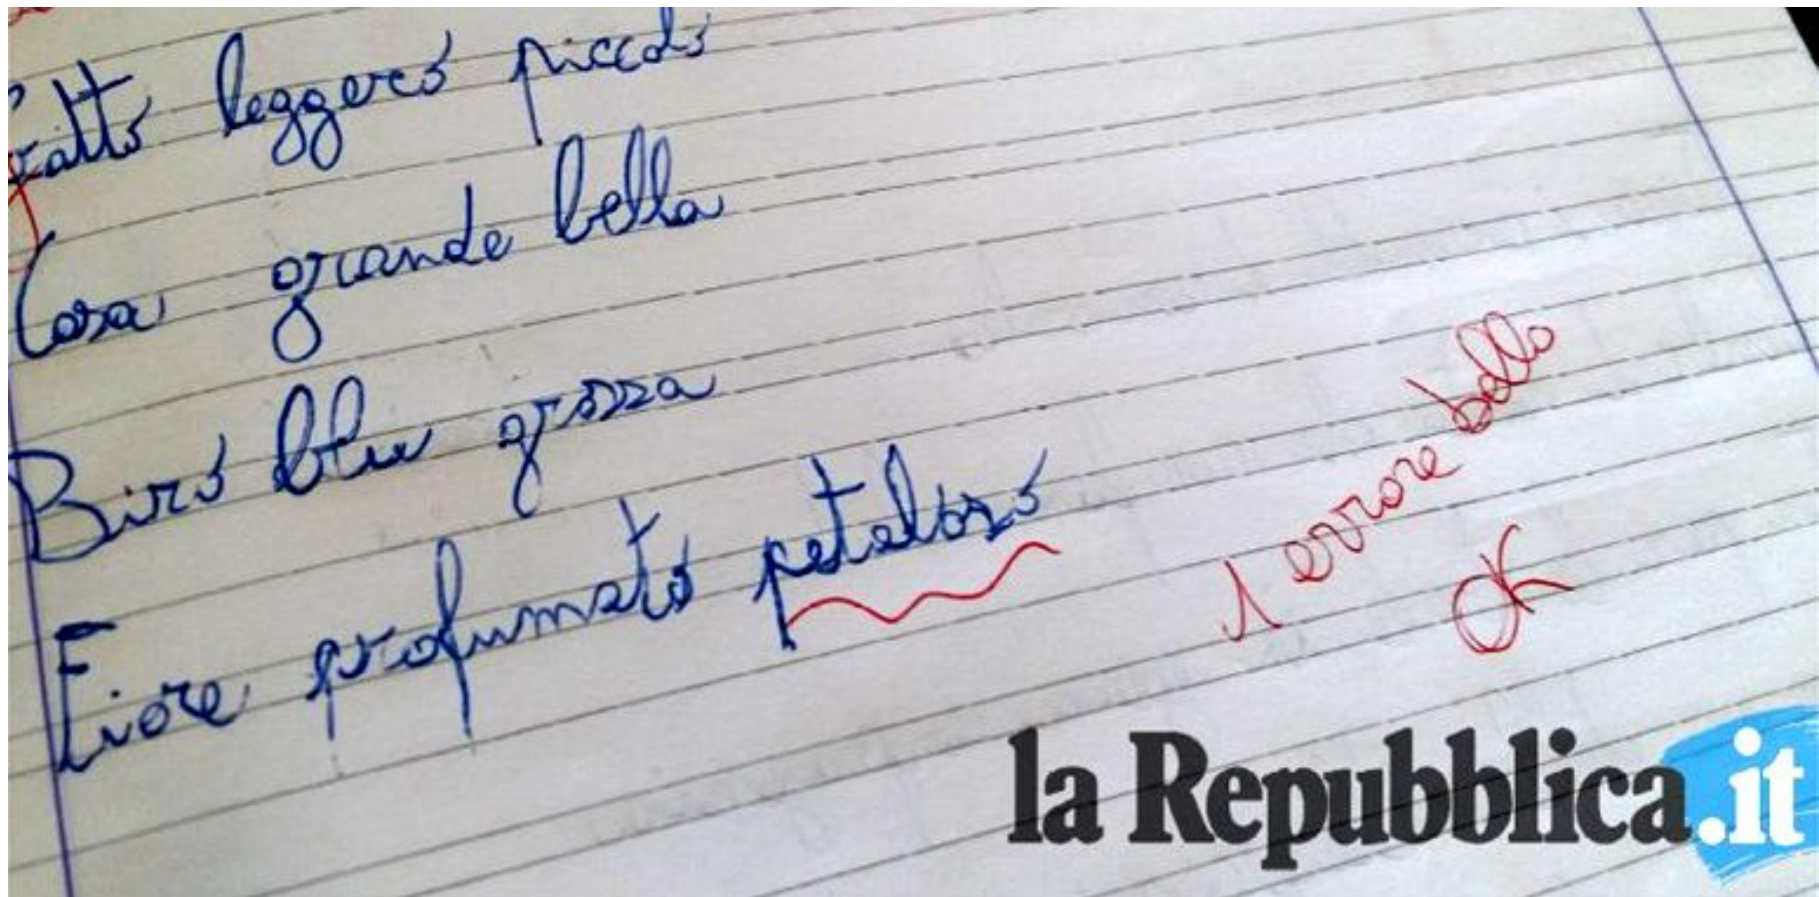 leggero piccolo
Casa grande bella
Biro blu grossa
Fiore profumato petaloso
1 errore bello
OK
la Repubblica.it